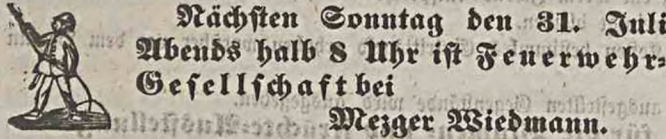 Nächsten Sonntag den 31. Juli
Abends halb 8 Uhr ist Feuerwehr-
Gesellschaft bei
Mezger Wiedmann.